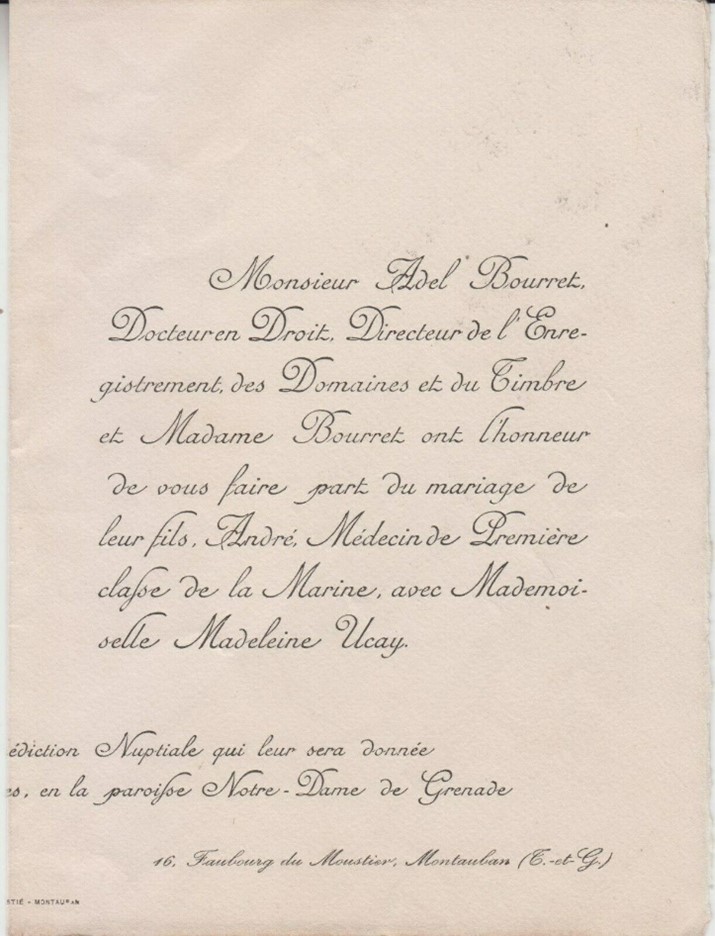 Monsieur Adel Bourret,
Docteur en Droit, Directeur de l'Enre-
gistrement, des Domaines et du Timbre
et Madame Bourret ont l'honneur
de vous faire part du mariage de
leur fils, André, Médecin de Première
claſse de la Marine, avec Mademoi-
selle Madeleine Ucay.
édiction Nuptiale qui leur sera donnée
es, en la paroiſse Notre-Dame de Grenade
16, Faubourg du Moustier, Montauban (T.-et-G.)
TIÉ - MONTAUBAN